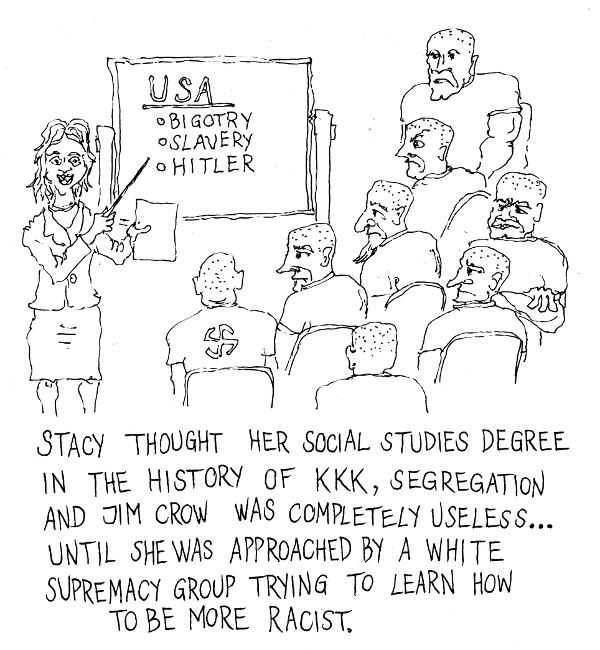 USA
o BIGOTRY
o SLAVERY
o HITLER
STACY THOUGHT HER SOCIAL STUDIES DEGREE
IN THE HISTORY OF KKK, SEGREGATION
AND JIM CROW WAS COMPLETELY USELESS...
UNTIL SHE WAS APPROACHED BY A WHITE
SUPREMACY GROUP TRYING TO LEARN HOW
TO BE MORE RACIST.